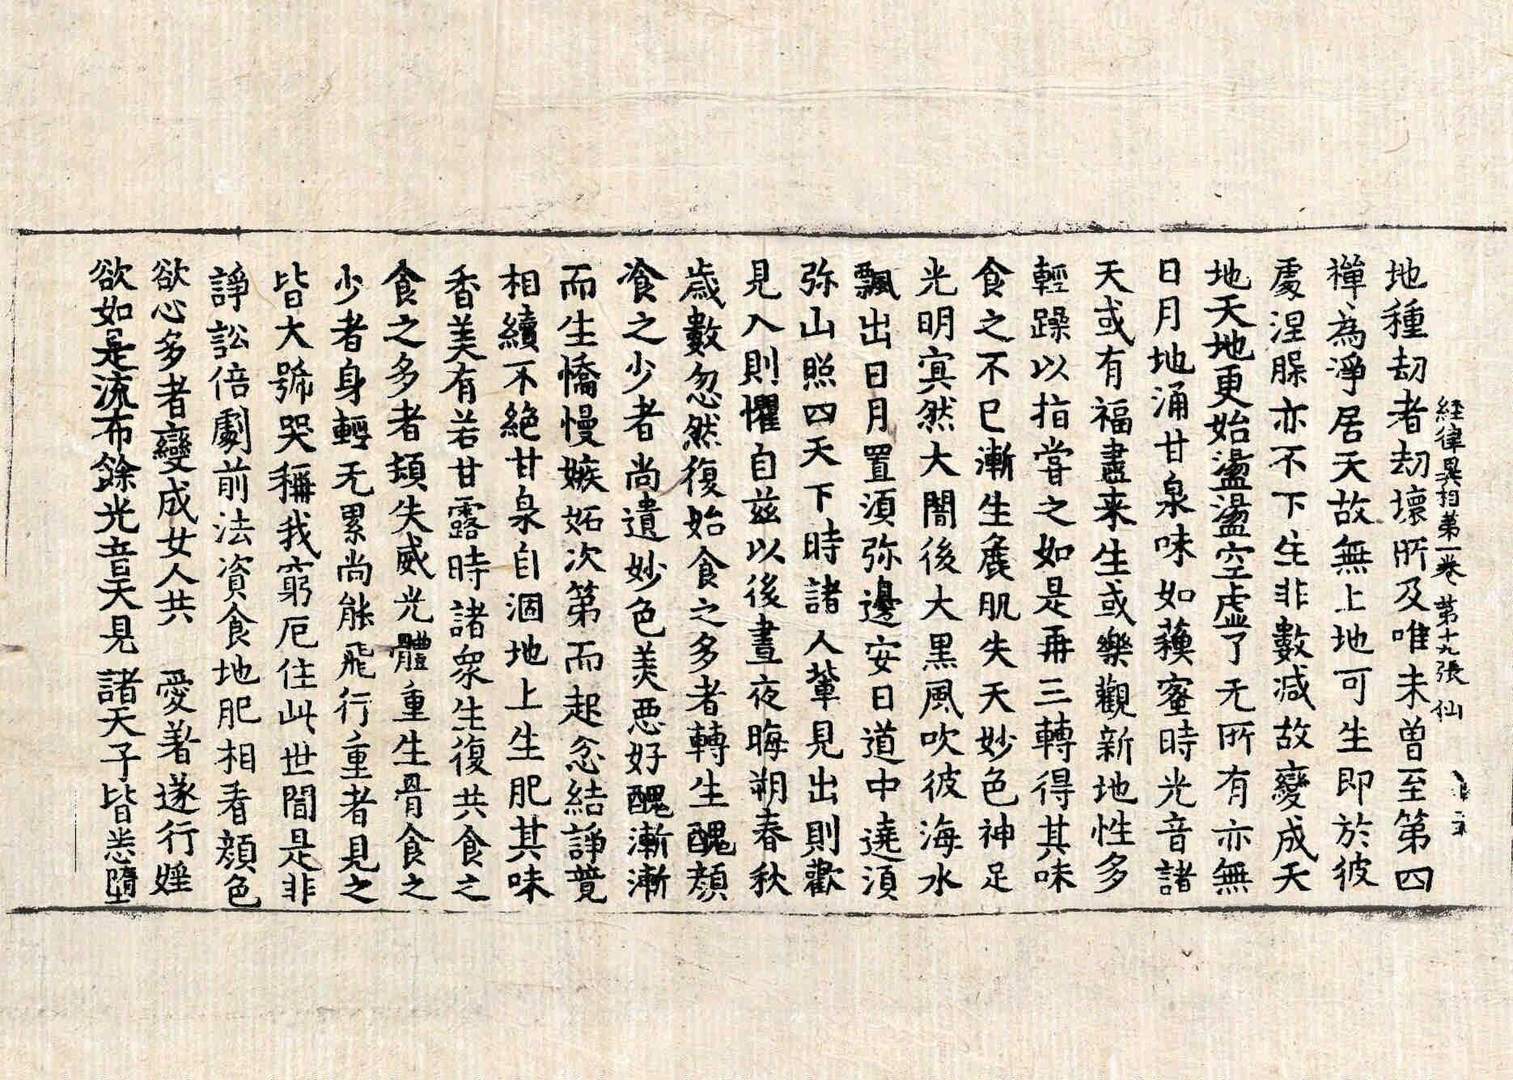 経律異相第一卷 第十九張 仙
地種劫者劫壞所及唯未曽至第四
禪為淨居天故無上地可生即於彼
處涅腺亦不下生非數减故變成天
地天地更始盪盪空虛了无所有亦無
日月地涌甘泉味如蘓蜜時光音諸
天或有福盡来生或樂觀新地性多
輕躁以指嘗之如是再三轉得其味
食之不已漸生麁肌失天妙色神足
光明冥然大闇後大黒風吹彼海水
飄出日月置須弥邊安日道中遶須
弥山照四天下時諸人輩見出則歡
見入則懼自兹以後晝夜晦朔春秋
歳數忽然復始食之多者轉生醜顏
飡之少者尚遺妙色美惡好醜漸漸
而生憍慢嫉妬次第而起忿結諍競
相續不絶甘泉自涸地上生肥其味
香美有若甘露時諸衆生復共食之
食之多者頓失威光體重生骨食之
少者身輕无累尚能飛行重者見之
皆大號哭稱我窮厄住此世間是非
諍訟倍劇前法資食地肥相看顏色
欲心多者變成女人共 愛著遂行婬
欲如是流布餘光音天見 諸天子皆悉墮